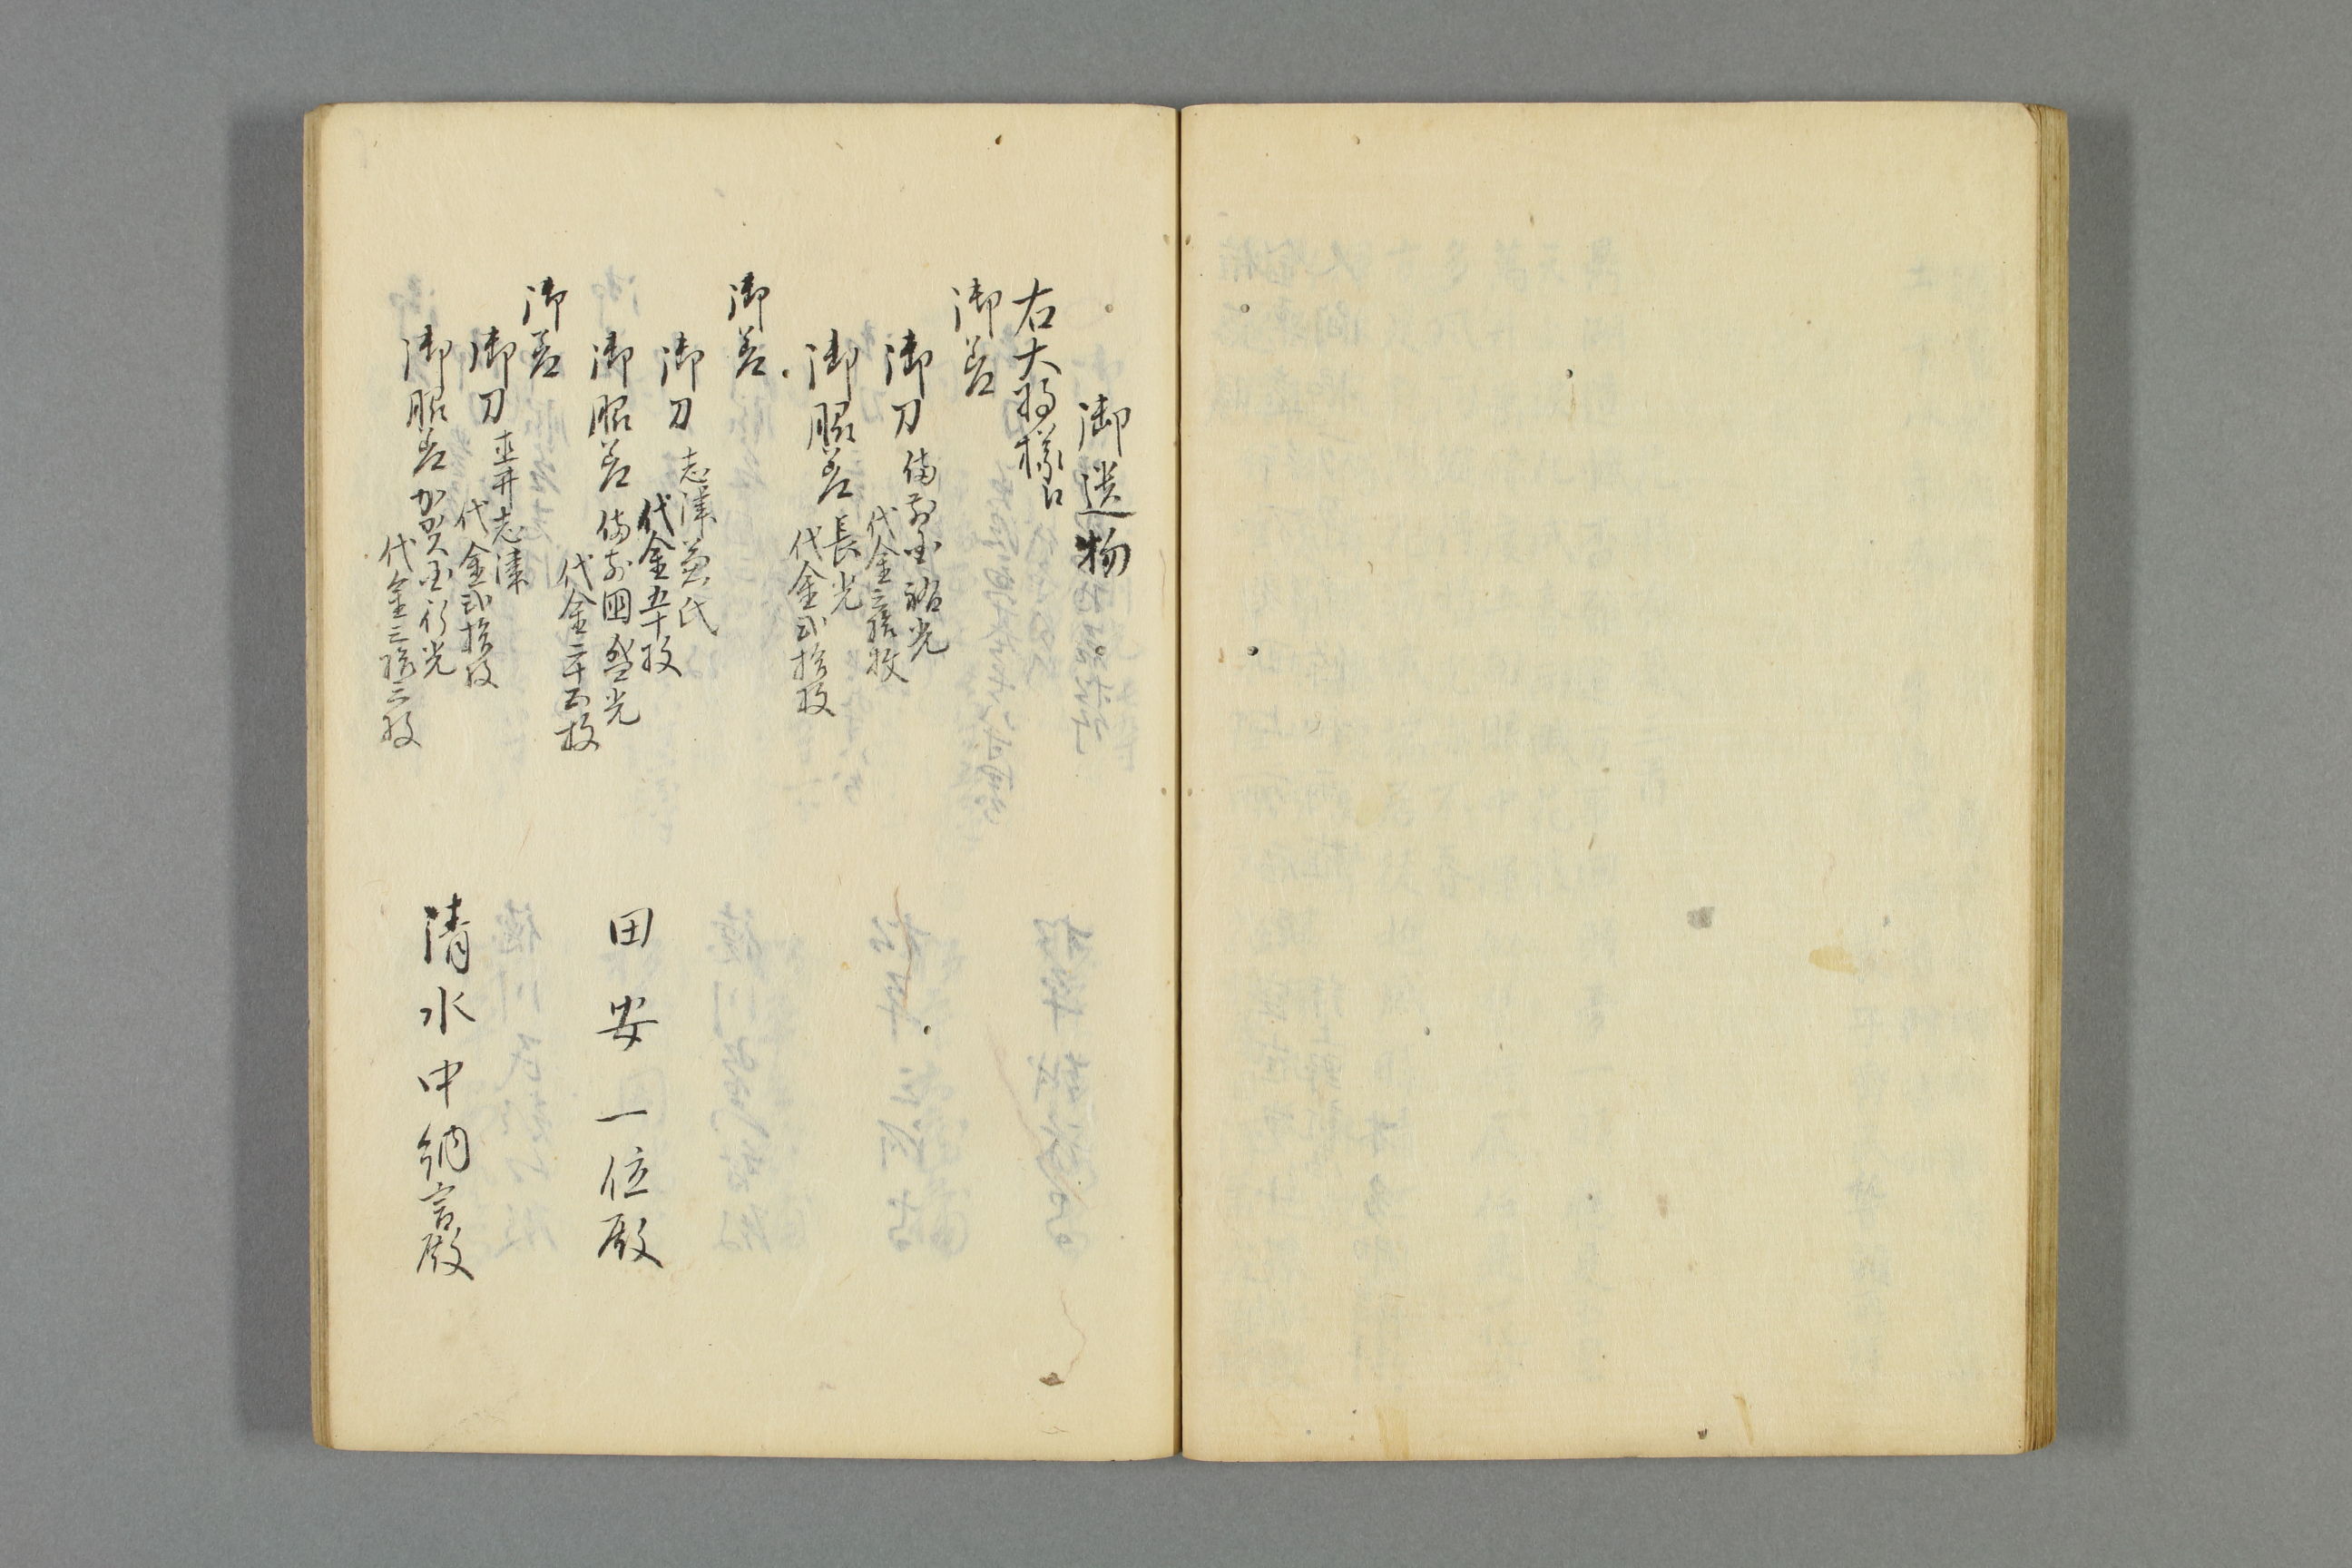 御遺物
右大将様ゟ
御差
御刀 備前国祐光
代金三拾枚
御脇差 長光
代金弐拾枚
御差
御刀 志津兼氏
代金五十枚
御脇差 備前國盛光
代金二十五枚
田安一位殿
御差
御刀 直井志津
代金弐拾枚
御脇差 加賀国行光
代金三拾三枚
清水中納言殿